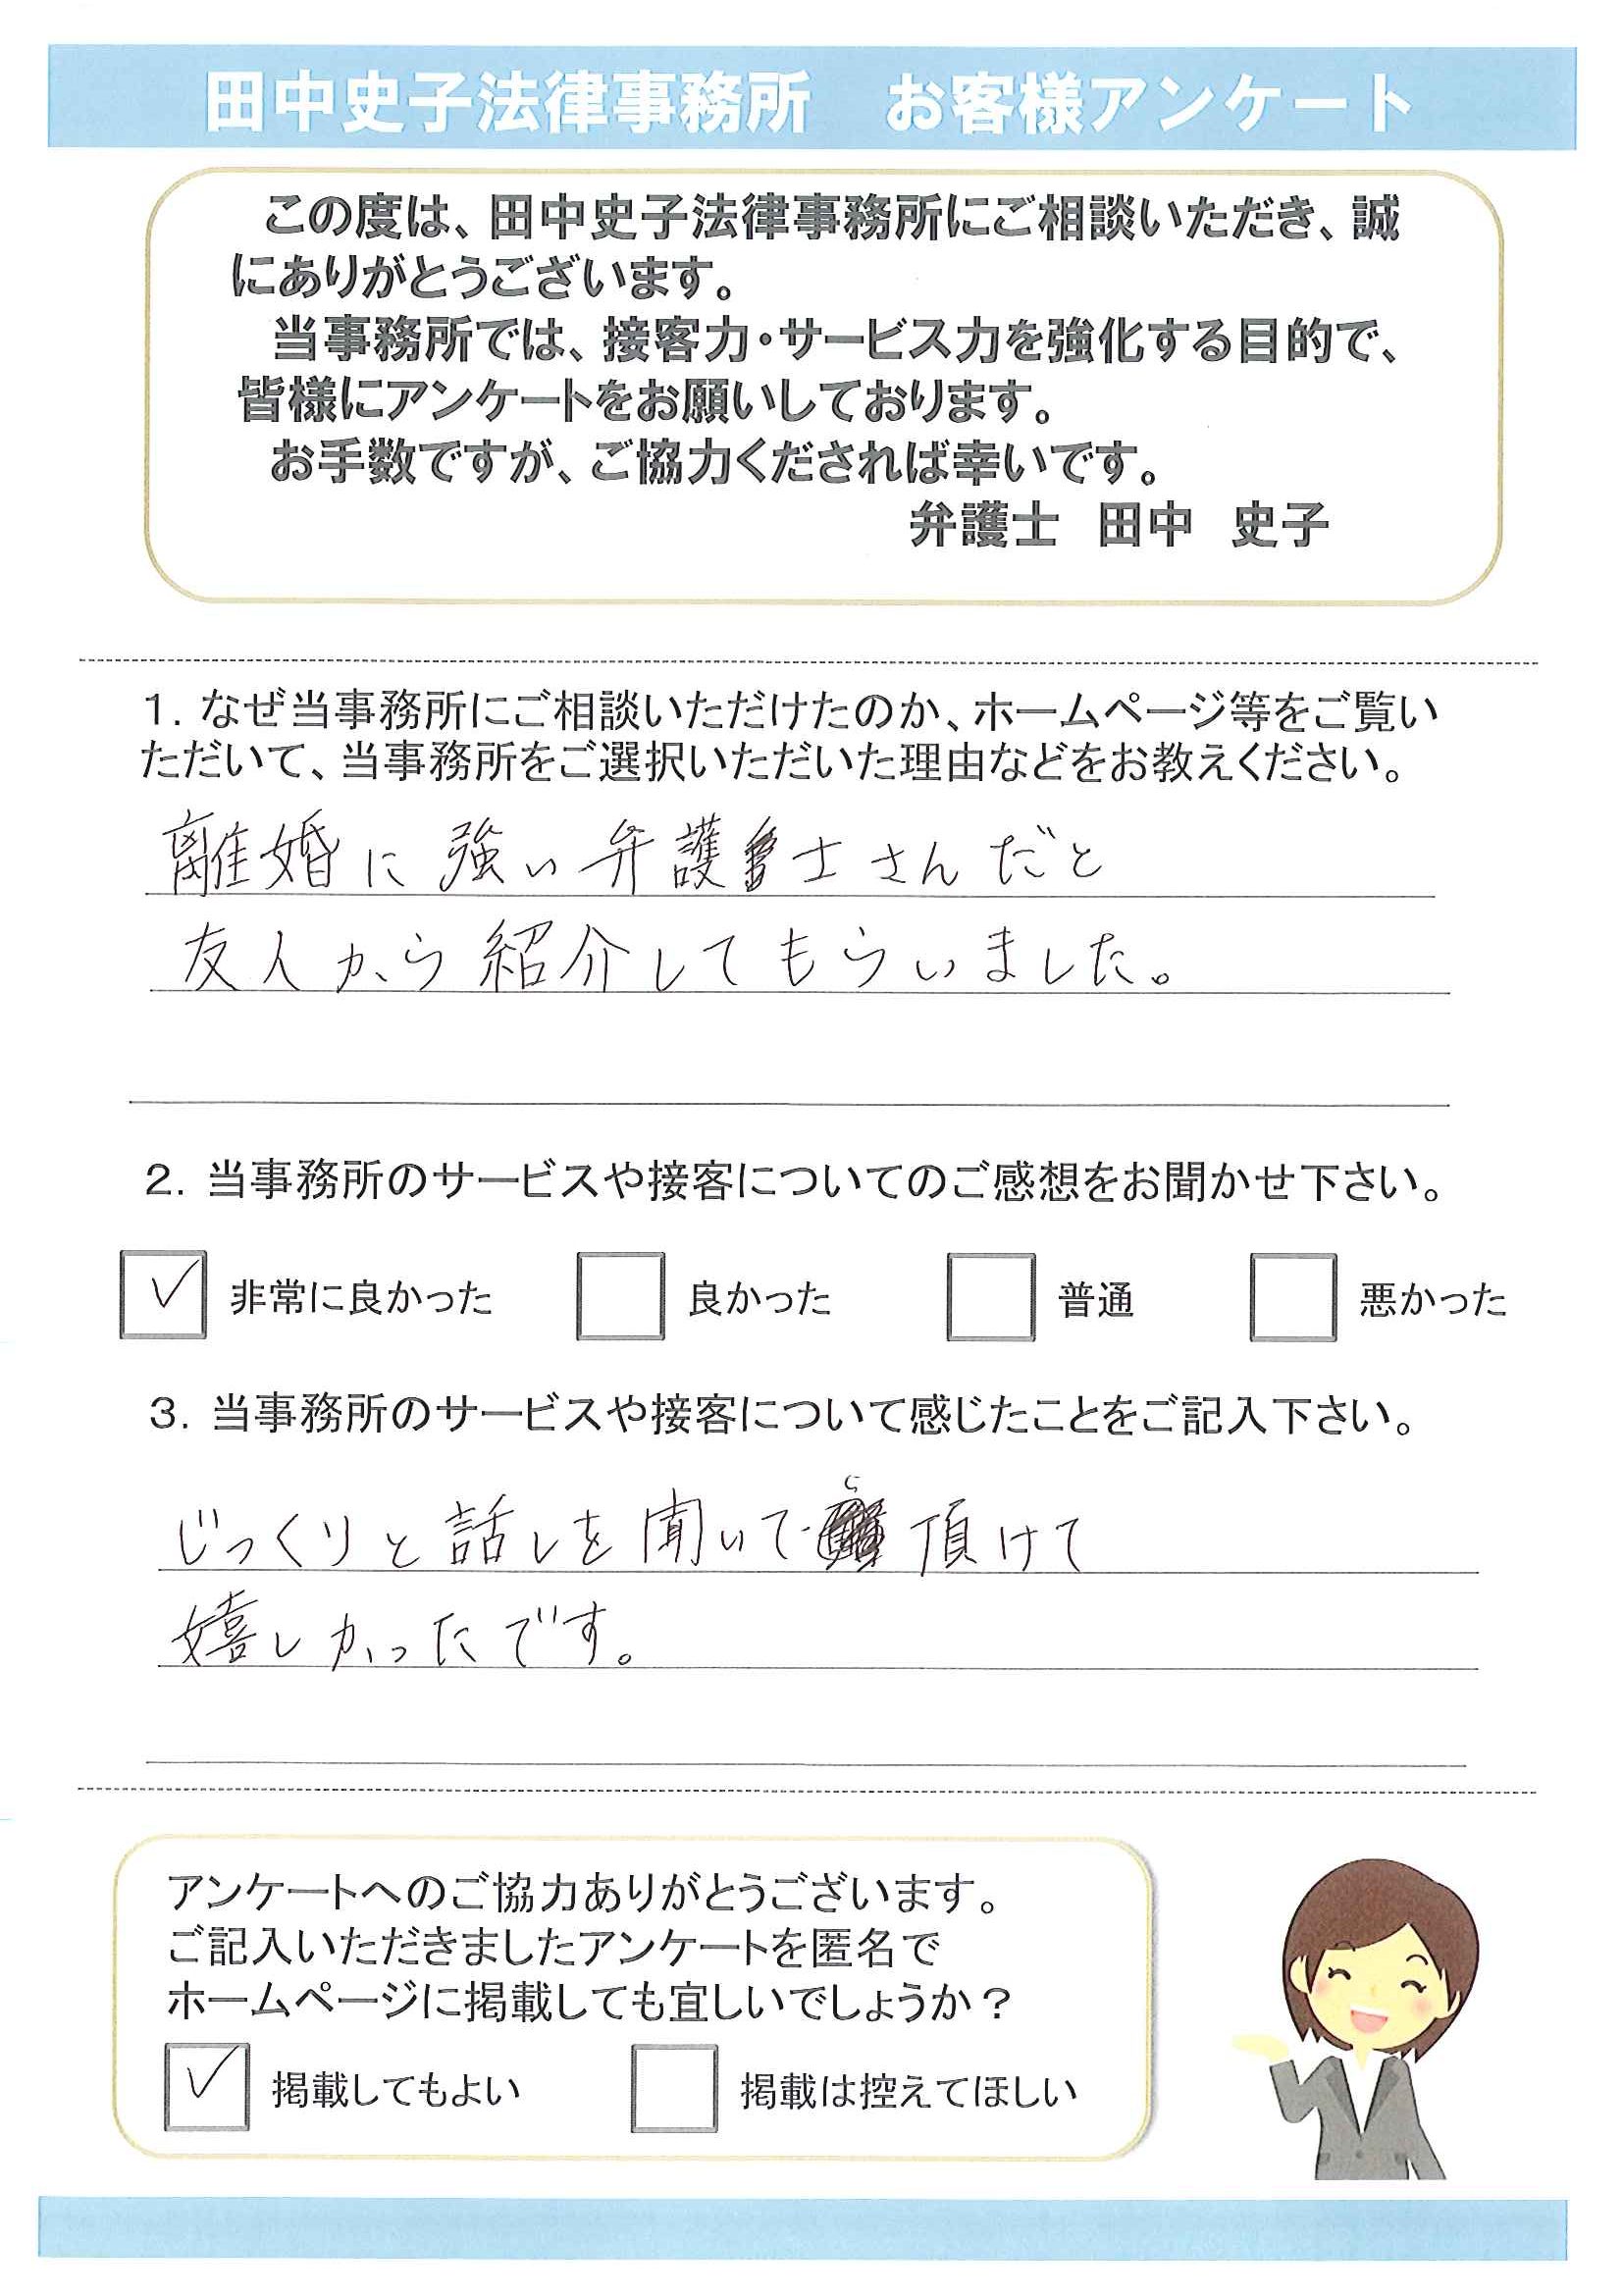 田中史子法律事務所　お客様アンケート
この度は、田中史子法律事務所にご相談いただき、誠
にありがとうございます。
当事務所では、接客力・サービス力を強化する目的で、
皆様にアンケートをお願いしております。
お手数ですが、ご協力くだされば幸いです。
弁護士　田中　史子
1. なぜ当事務所にご相談いただけたのか、ホームページ等をご覧い
ただいて、当事務所をご選択いただいた理由などをお教えください。
離婚に強い弁護士さんだと
友人から紹介してもらいました。
2. 当事務所のサービスや接客についてのご感想をお聞かせ下さい。
✓ 非常に良かった　良かった　普通　悪かった
3. 当事務所のサービスや接客について感じたことをご記入下さい。
じっくりと話しを聞いて頂けて
嬉しかったです。
アンケートへのご協力ありがとうございます。
ご記入いただきましたアンケートを匿名で
ホームページに掲載しても宜しいでしょうか？
✓ 掲載してもよい　掲載は控えてほしい